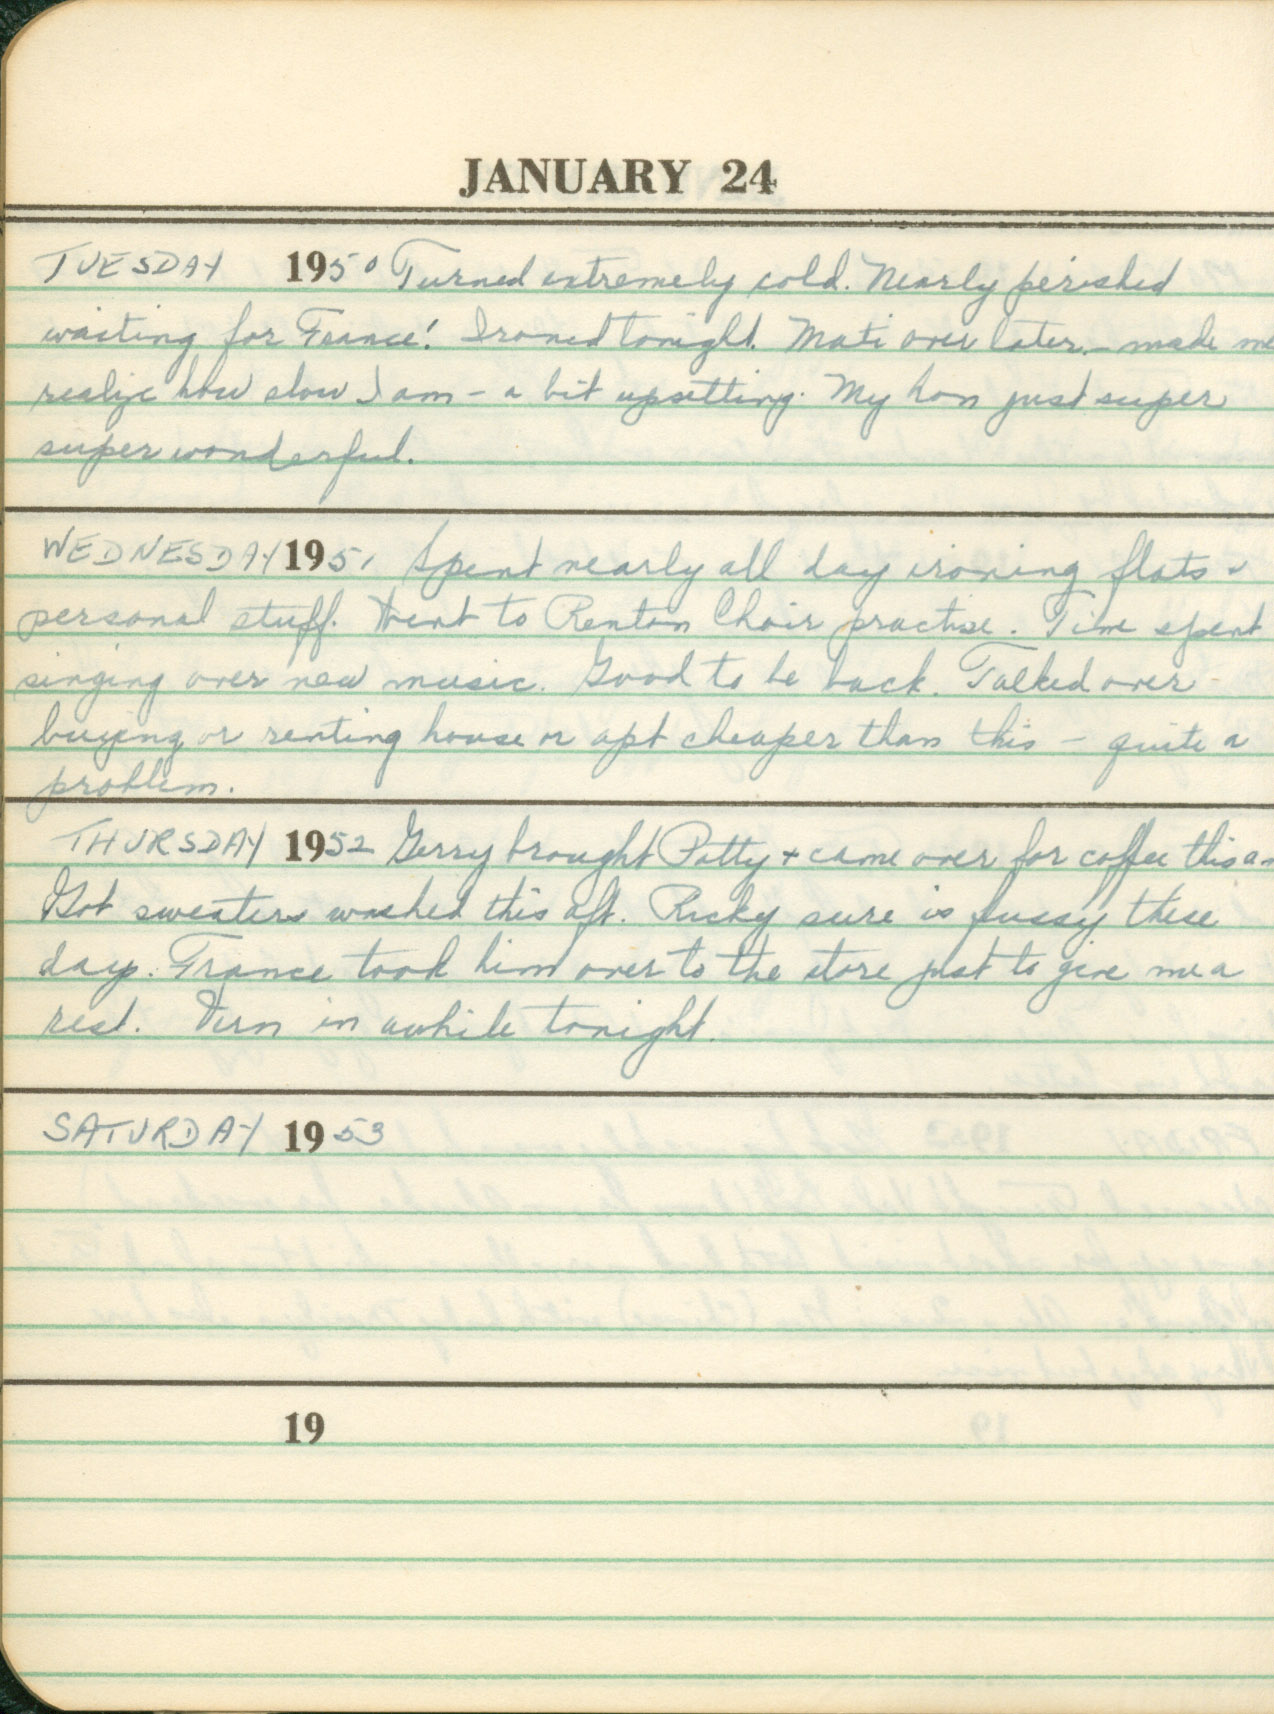 JANUARY 24
TUESDAY 1950 Turned extremely cold. Nearly perished
waiting for France! Ironed tonight. Mati over later - made me
realize how slow I am - a bit upsetting. My hon just super
super wonderful.
WEDNESDAY 1951 Spent nearly all day ironing flats &
personal stuff. Went to Renton Choir practise. Time spent
singing over new music. Good to be back. Talked over
buying or renting house or apt cheaper than this - quite a
problem.
THURSDAY 1952 Gerry brought Patty + came over for coffee this a
Got sweaters washed this aft. Ricky sure is fussy these
days. France took him over to the store just to give me a
rest. Vern in awhile tonight.
SATURDAY 1953
19